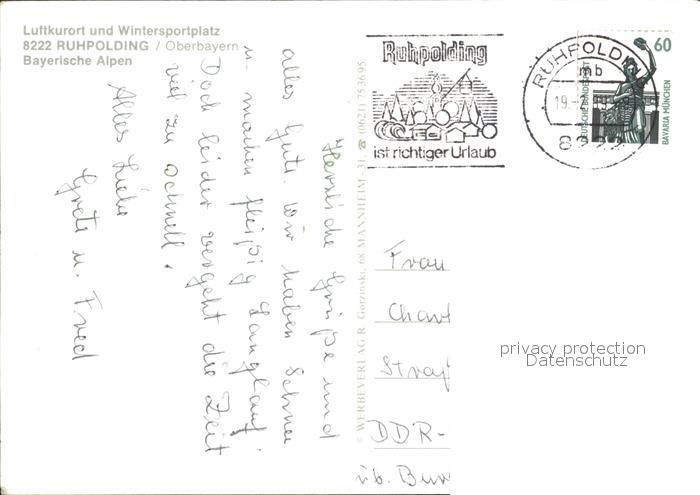 Luftkurort und Wintersportplatz
8222 RUHPOLDING / Oberbayern
Bayerische Alpen
Herzliche Grüße und
alles Gute. Wir haben Schnee
u. machen fleißig Langlauf.
Doch leider vergeht die Zeit
viel zu schnell.
Alles Liebe
Grete u. Fred
© WERBEVERLAG R. Gorzinski, 68 MANNHEIM - 31, ☎ (0621) 753695
Ruhpolding
ist richtiger Urlaub
RUHPOLDING
mb
19.
8222
60
DEUTSCHE BUNDESPOST
BAVARIA MÜNCHEN
Frau
Charl
Straß
DDR-
privacy protection
Datenschutz